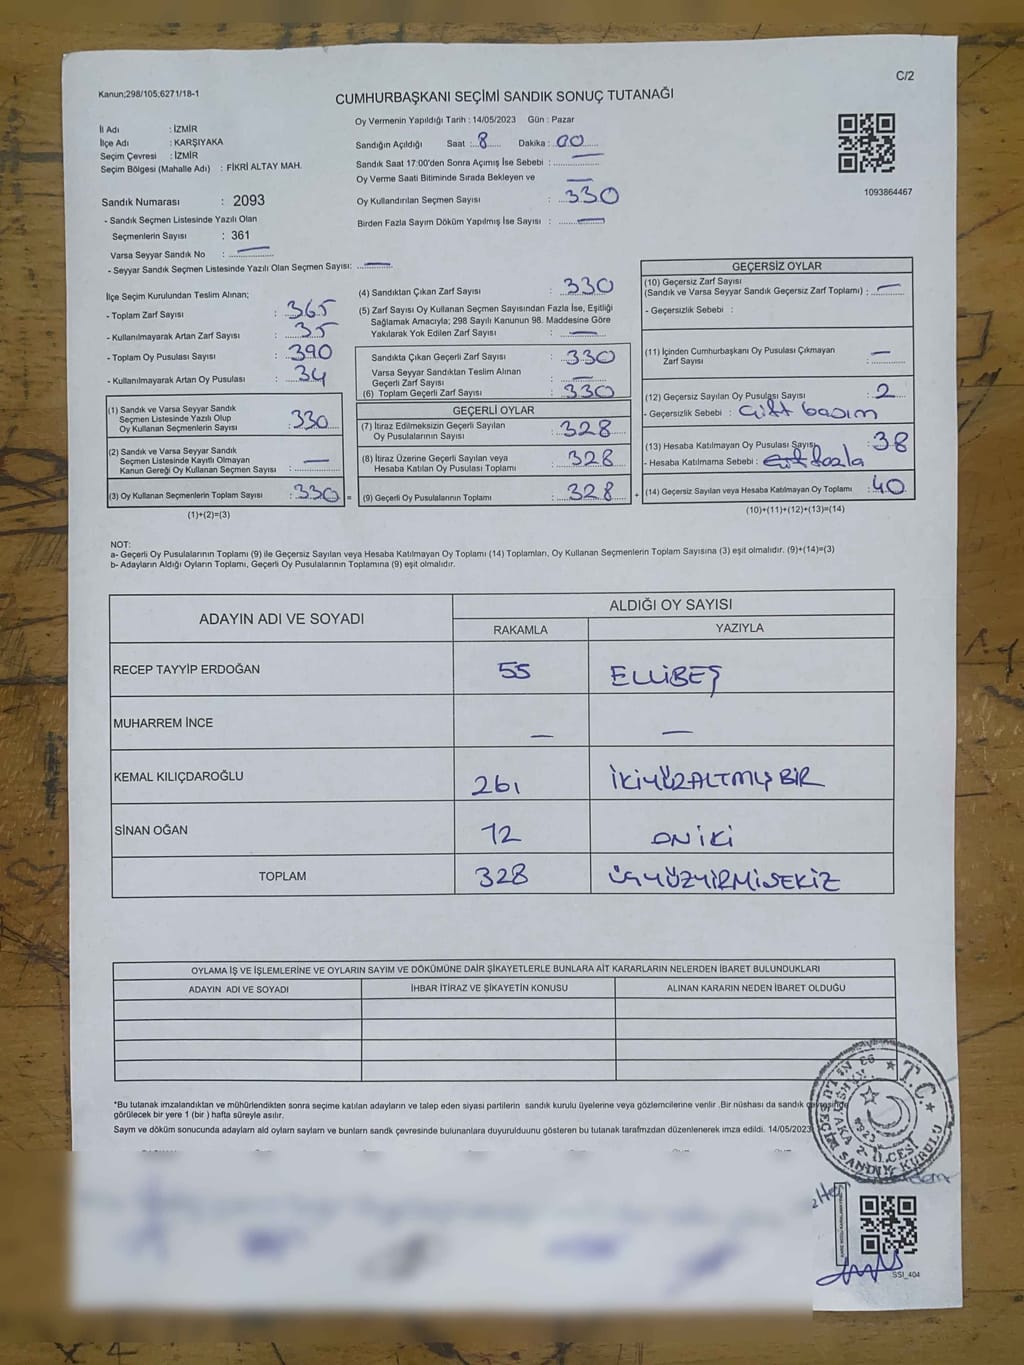 C/2
Kanun;298/105;6271/18-1
CUMHURBAŞKANI SEÇİMİ SANDIK SONUÇ TUTANAĞI
İl Adı : İZMİR
İlçe Adı : KARŞIYAKA
Seçim Çevresi : İZMİR
Seçim Bölgesi (Mahalle Adı) : FİKRİ ALTAY MAH.
Oy Vermenin Yapıldığı Tarih : 14/05/2023 Gün : Pazar
Sandığın Açıldığı Saat : 8 Dakika : 00
Sandık Saat 17:00'den Sonra Açımış İse Sebebi : —
Oy Verme Saati Bitiminde Sırada Bekleyen ve
Oy Kullandırılan Seçmen Sayısı : 330
Birden Fazla Sayım Döküm Yapılmış İse Sayısı : —
1093864467
Sandık Numarası : 2093
- Sandık Seçmen Listesinde Yazılı Olan
Seçmenlerin Sayısı : 361
Varsa Seyyar Sandık No : —
- Seyyar Sandık Seçmen Listesinde Yazılı Olan Seçmen Sayısı: —
İlçe Seçim Kurulundan Teslim Alınan;
- Toplam Zarf Sayısı : 365
- Kullanılmayarak Artan Zarf Sayısı : 35
- Toplam Oy Pusulası Sayısı : 390
- Kullanılmayarak Artan Oy Pusulası : 34
(1) Sandık ve Varsa Seyyar Sandık
Seçmen Listesinde Yazılı Olup
Oy Kullanan Seçmenlerin Sayısı : 330
(2) Sandık ve Varsa Seyyar Sandık
Seçmen Listesinde Kayıtlı Olmayan
Kanun Gereği Oy Kullanan Seçmen Sayısı : —
(3) Oy Kullanan Seçmenlerin Toplam Sayısı : 330 =
(1)+(2)=(3)
(4) Sandıktan Çıkan Zarf Sayısı : 330
(5) Zarf Sayısı Oy Kullanan Seçmen Sayısından Fazla İse, Eşitliği
Sağlamak Amacıyla; 298 Sayılı Kanunun 98. Maddesine Göre
Yakılarak Yok Edilen Zarf Sayısı : —
Sandıkta Çıkan Geçerli Zarf Sayısı : 330
Varsa Seyyar Sandıktan Teslim Alınan
Geçerli Zarf Sayısı : —
(6) Toplam Geçerli Zarf Sayısı : 330
GEÇERLİ OYLAR
(7) İtiraz Edilmeksizin Geçerli Sayılan
Oy Pusulalarının Sayısı : 328
(8) İtiraz Üzerine Geçerli Sayılan veya
Hesaba Katılan Oy Pusulası Toplamı : 328
(9) Geçerli Oy Pusulalarının Toplamı : 328 +
GEÇERSİZ OYLAR
(10) Geçersiz Zarf Sayısı
(Sandık ve Varsa Seyyar Sandık Geçersiz Zarf Toplamı) : —
- Geçersizlik Sebebi :
(11) İçinden Cumhurbaşkanı Oy Pusulası Çıkmayan
Zarf Sayısı : —
(12) Geçersiz Sayılan Oy Pusulası Sayısı : 2
- Geçersizlik Sebebi : Çift basım
(13) Hesaba Katılmayan Oy Pusulası Sayısı : 38
- Hesaba Katılmama Sebebi : fazla
(14) Geçersiz Sayılan veya Hesaba Katılmayan Oy Toplamı : 40
(10)+(11)+(12)+(13)=(14)
NOT:
a- Geçerli Oy Pusulalarının Toplamı (9) ile Geçersiz Sayılan veya Hesaba Katılmayan Oy Toplamı (14) Toplamları, Oy Kullanan Seçmenlerin Toplam Sayısına (3) eşit olmalıdır. (9)+(14)=(3)
b- Adayların Aldığı Oyların Toplamı, Geçerli Oy Pusulalarının Toplamına (9) eşit olmalıdır.
ADAYIN ADI VE SOYADI
ALDIĞI OY SAYISI
RAKAMLA YAZIYLA
RECEP TAYYİP ERDOĞAN 55 ELLİBEŞ
MUHARREM İNCE — —
KEMAL KILIÇDAROĞLU 261 İKİYÜZALTMIŞ BİR
SİNAN OĞAN 12 ONİKİ
TOPLAM 328 ÜÇYÜZYİRMİSEKİZ
OYLAMA İŞ VE İŞLEMLERİNE VE OYLARIN SAYIM VE DÖKÜMÜNE DAİR ŞİKAYETLERLE BUNLARA AİT KARARLARIN NELERDEN İBARET BULUNDUKLARI
ADAYIN ADI VE SOYADI İHBAR İTİRAZ VE ŞİKAYETİN KONUSU ALINAN KARARIN NEDEN İBARET OLDUĞU
*Bu tutanak imzalandıktan ve mühürlendikten sonra seçime katılan adayların ve talep eden siyasi partilerin sandık kurulu üyelerine veya gözlemcilerine verilir .Bir nüshası da sandık çevresinde
görülecek bir yere 1 (bir ) hafta süreyle asılır.
Sayım ve döküm sonucunda adayların ald oyların sayların ve bunların sandk çevresinde bulunanlara duyurulduunu gösteren bu tutanak tarafmzdan düzenlenerek imza edildi. 14/05/2023
T.C.
SANDIK KURULU
SSI_404